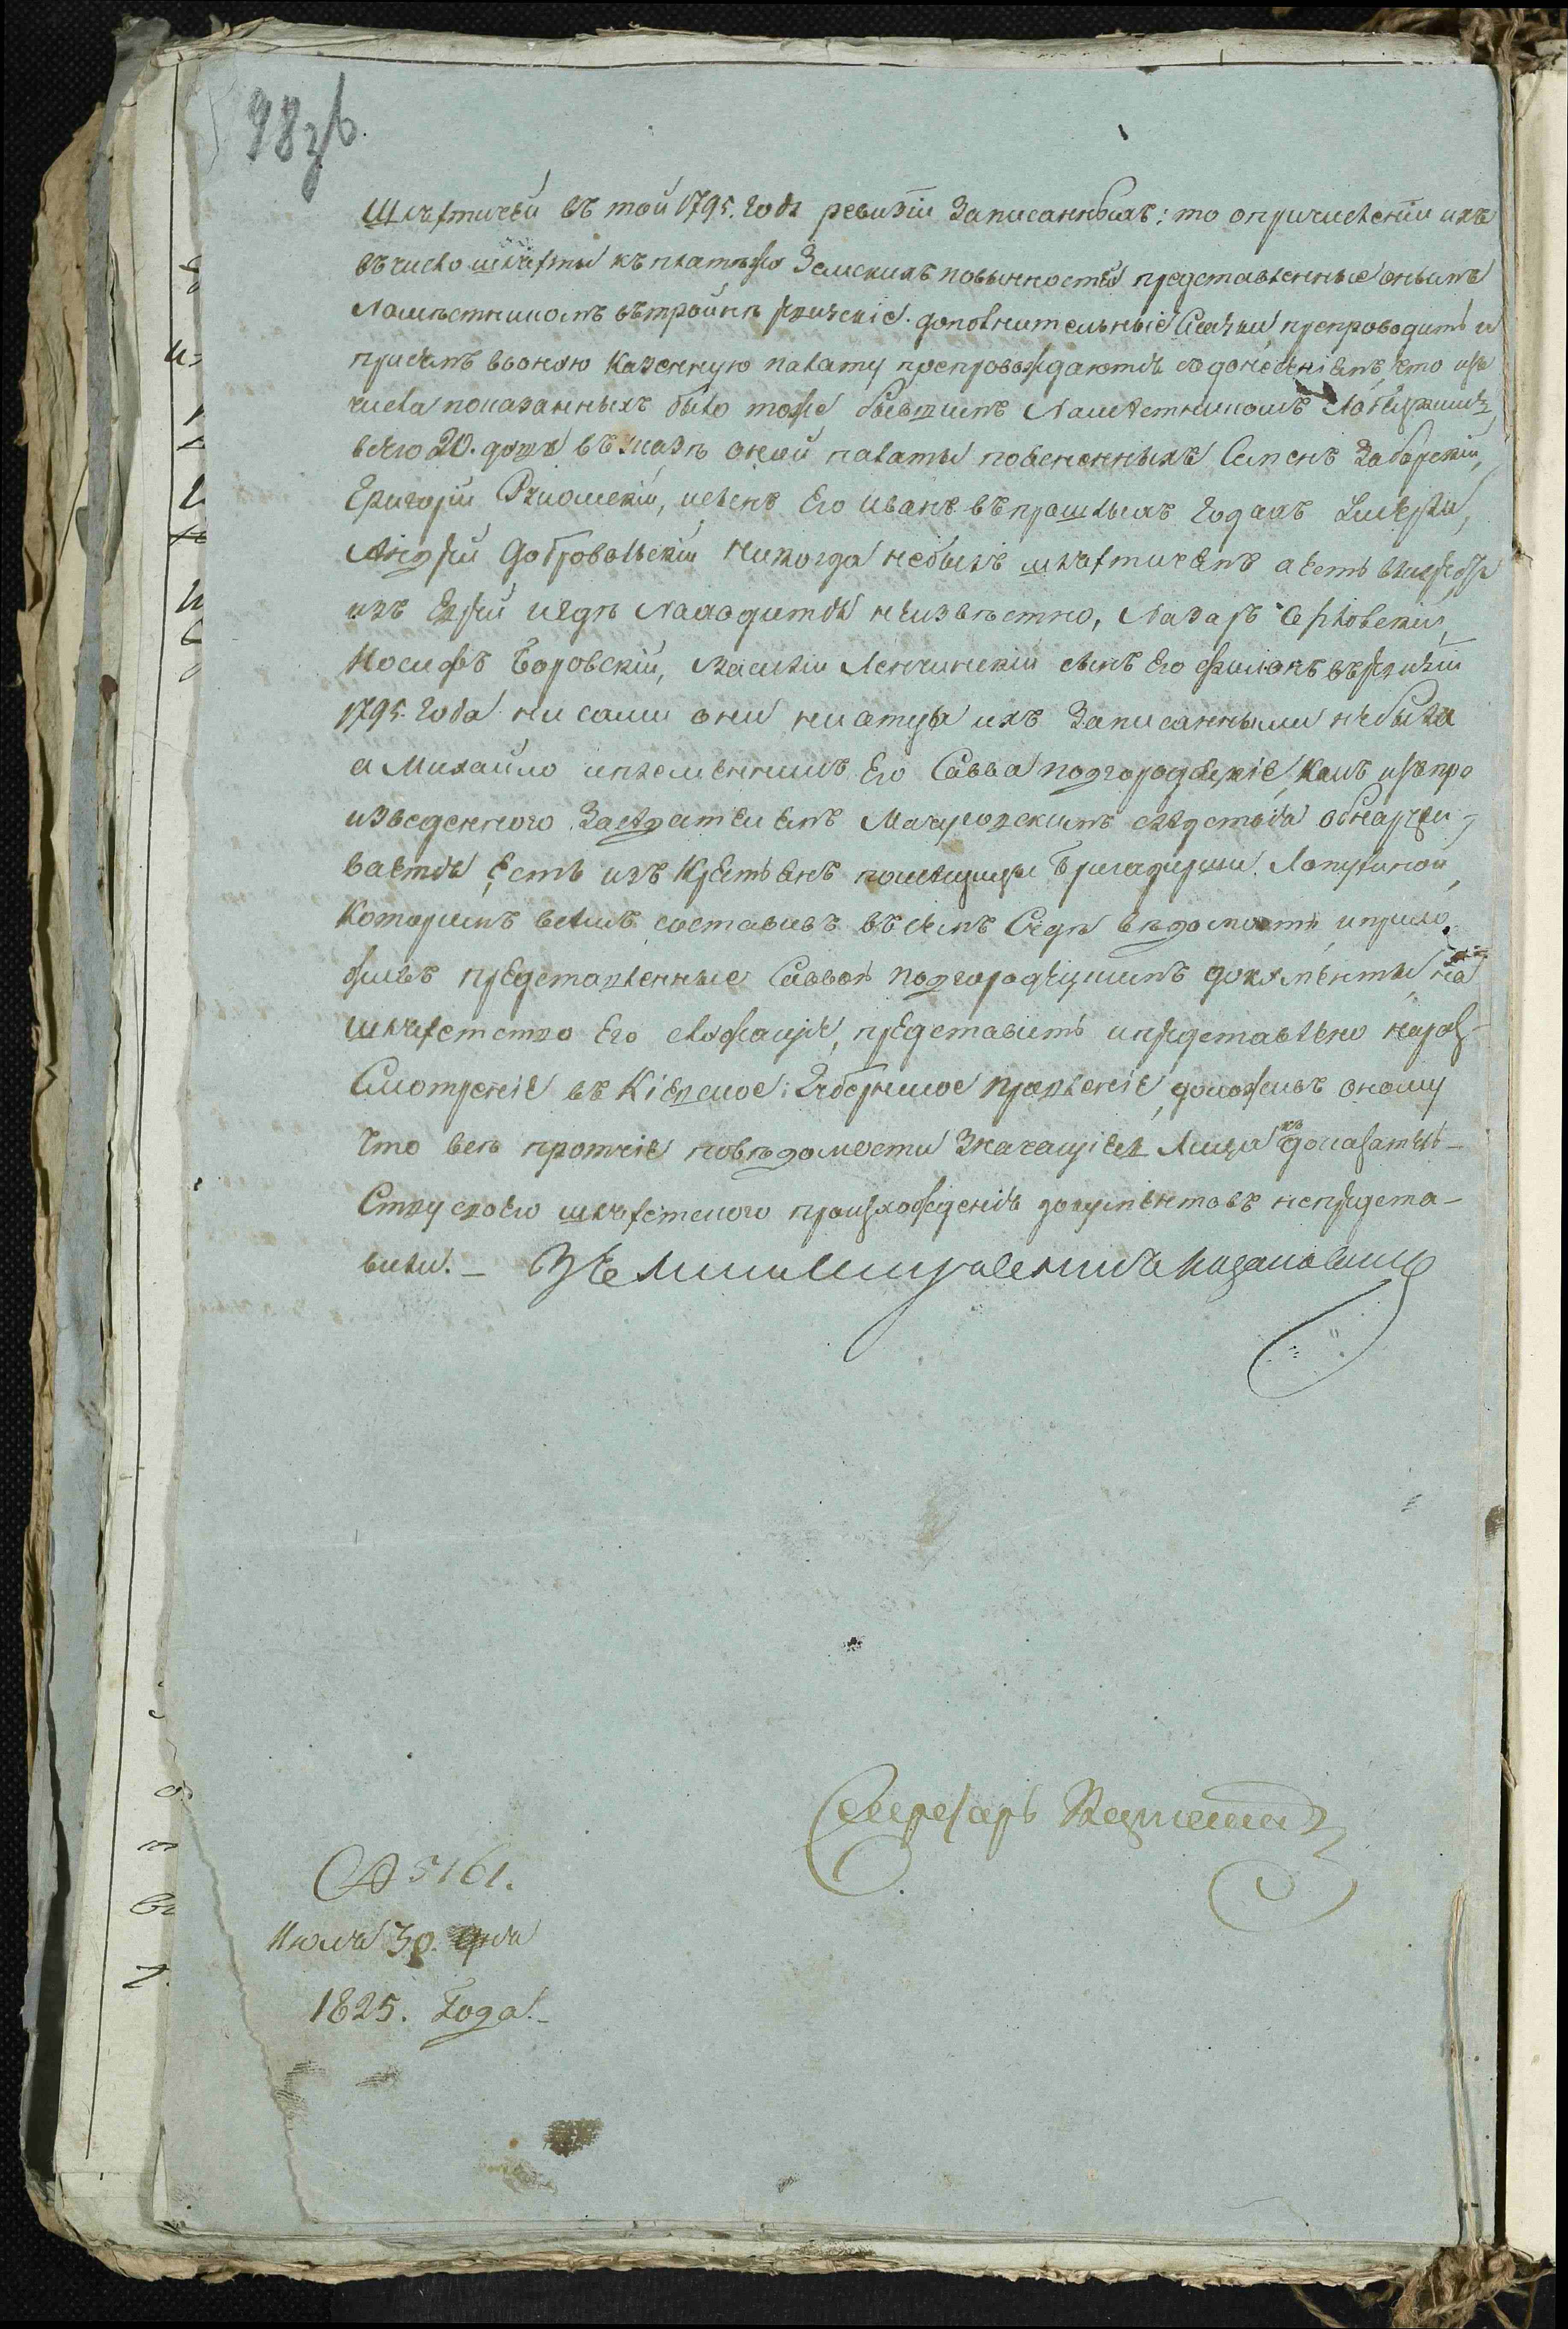 98 зв.
Шляхтичей въ той 1795. года ревизіи записанныхъ: то опричисленіи ихъ
въ число шляхты къ платежу Земскихъ повинностей представленные онымъ
Намѣстникомъ въ тройнѣ ревизскіе дополнительные Сказки препроводить и
при семъ въ оною Казенную палату препровождаются съ донесеніемъ, что изъ
числа показанныхъ было тоже бывшимъ Намѣстникомъ
въ указѣ оной палаты Семенъ Заборскій,
Григорій сынъ Его Иванъ въ прошлыхъ годахъ умерли,
Андрей Добровольскій никогда небылъ шляхтичемъ а есть
изъ и гдѣ находится неизвѣстно, Лазарь
Иосифъ Боровскій, Василій Ленчинскій сынъ Его Филонъ въ ревизіи
1795. года ни сами они ни отцы ихъ записанными небыли
а Михайло и племянникъ Его Савва Подгородецкіе, какъ изъ про
изведеннаго Засѣдателемъ слѣдствія обнаружи-
вается есть изъ крестьянъ помещицы Бригадирши Лопухиной,
которымъ всѣмъ составивъ въ семъ Судѣ вѣдомость и прило
живъ представленные Саввою Подгородецкимъ документы на
шляхетство Его служащіе, представить и представлено на раз-
Смотреніе въ Кіевское Губернское Правленіе, доложивъ оному
что всѣ протчіе по вѣдомости значащіеся Лица къ доказатель-
Ству своего шляхетского происхожденія документовъ непредста-
вили. –
Секретарь
№ 5161.
Июля 30. дня
1825. Года. –